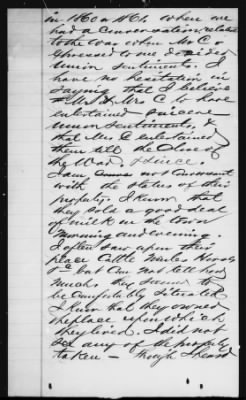 in 1860 or 1861, when we
had a conversation, relative
to the war when Mr. C
expressed to me decided
Union sentiments. I
have no hesitation in
saying that I believe
Mr & Mrs C to have
entertained sincere
union sentiments, &
that Mrs C entertained
them till the close of
the War, & since.
I am not conversant
with the status of this
property. I know that
they sold a good deal
of milk in the town
morning and evening.
I often saw upon their
place Cattle Mules Horses
&c but can not tell how
much. they seemed to
be comfortably situated
I know that they owned
the place upon which
they lived. I did not
see any of the property
taken — though I heard